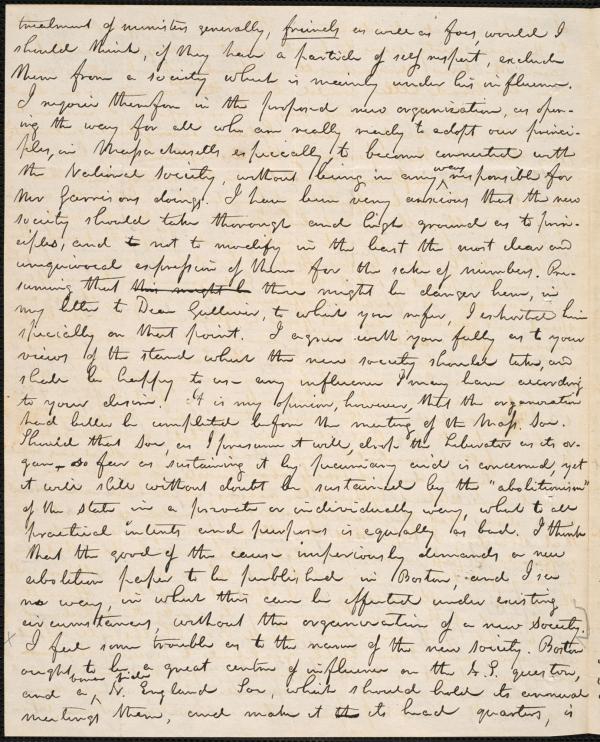 treatment of ministers generally, friends as well as foes, would I
should think, if they have a particle of self respect, exclude
them from a society which is mainly under his influence.
I rejoice therefore in the proposed new organization, as open-
ing the way for all who are really ready to adopt our princi-
ples, in Massachusetts especially, to become connected with
the National Society, without being in any way responsible for
Mr Garrisons doings. I have been very anxious that the new
society should take thorough and high ground as to prin-
ciples, and to not to modify in the least the most clear and
unequivocal expression of them for the sake of numbers. Pre-
suming that this might b there might be danger here, in
my letter to Dear Gulliver, to which you refer, I exhorted him
specially on that point. I agree with you fully as to your
views of the stand which the new society should take, and
shall be happy to use any influence I may have according
to your desire. It is my opinion, however, that the organization
had better be completed before the meeting of the Mass. Soc.
Should that Soc, as I presume it will, drop the Liberator as its or-
gan, so far as sustaining it by pecuniary aid is concerned, yet
it will still without doubt be sustained by the "abolitionism"
of the state in a private or individually way, which to all
practical intents and purposes is equally as bad. I think
that the good of the cause imperiously demands a new
abolition paper to be published in Boston, and I see
no way, in which this can be effected under existing
circumstances, without the organization of a new society.
I feel some trouble as to the name of the new society. Boston
ought to be a great centre of influence on the A.S. question,
and a N. England Soc, which should hold its annual
meetings there, and make it the its head quarters, is